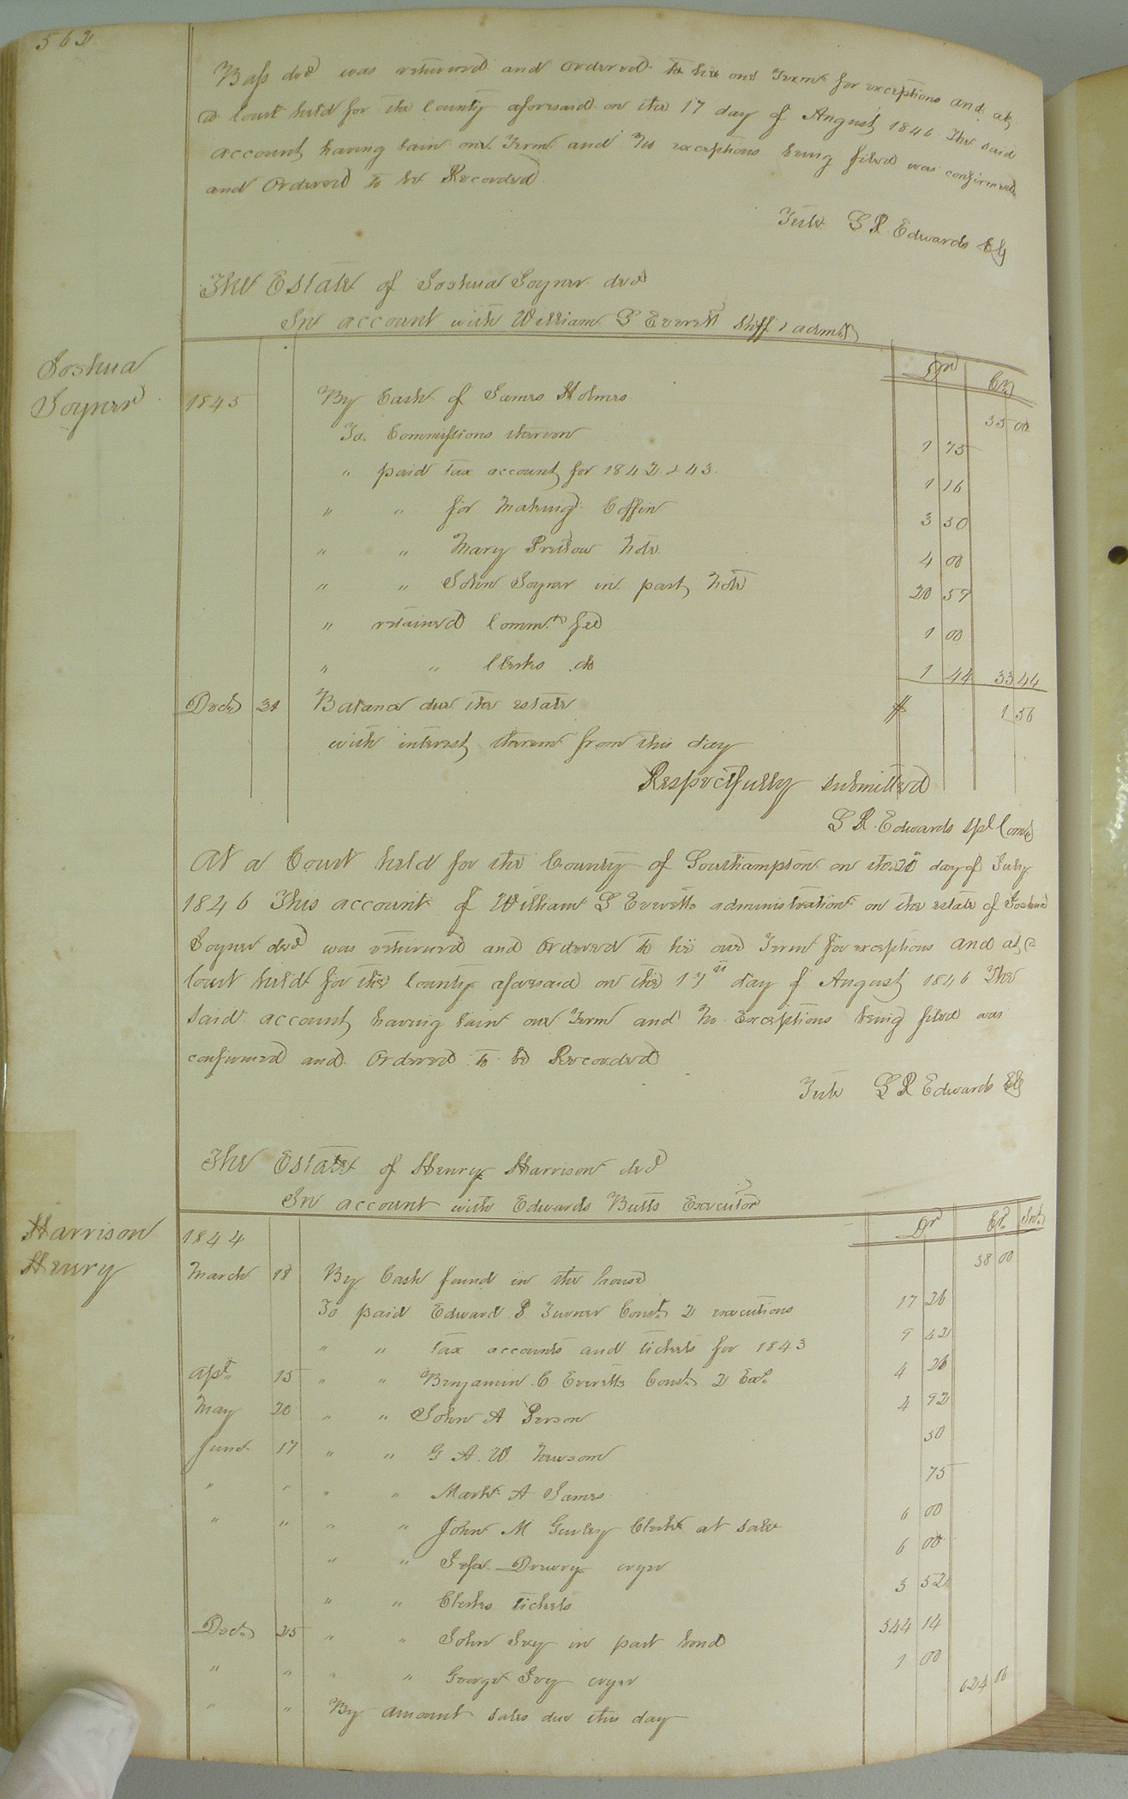 562
Bass decd was returned and ordered to lie one Term for exceptions and at
a Court held for the County aforesaid on the 17 day of August 1846 The said
account having lain one Term and No exceptions being filed was confirmed
and Ordered to be Recorded
Teste L R Edwards Clk
The Estate of Joshua Joyner decd
In account with William L Everett Shff & admr
Dr Cr
Joshua
Joyner
1845 By Cash of James Holmes 35 00
To Commissions thereon 1 75
" paid tax account for 1842 & 43 1 16
" " for Making Coffin 3 50
" " Mary Pretlow Note 4 00
" " John Joyner in part Note 20 57
" retained Commrs fee 1 00
" " Clerks do 1 44 33 44
Decr 31 Balance due the estate $ 1 56
with interest thereon from this day
Respectfully submitted
L R Edwards Spl Comr
At a Court held for the County of Southampton on the 20 day of July
1846 This account of William L Everetts administration on the estate of Joshua
Joyner decd was returned and Ordered to lie one Term for exceptions and at a
Court held for the County aforesaid on the 17th day of August 1846 The
said account having lain one Term and No Exceptions being filed was
confirmed and Ordered to be Recorded
Teste L R Edwards Clk
The Estate of Henry Harrison decd
In account with Edwards Butts Executor
Dr Cr Int
Harrison
Henry
1844
March 18 By Cash found in the house 38 00
To paid Edward P Turner Const 2 executions 17 26
" " Tax accounts and tickets for 1843 9 42
Apl 15 " " Benjamin C Everetts Const 2 Exo 4 26
May 20 " " John A Person 4 92
June 17 " " G A W Newsom 50
" " " " Mark A James 75
" " " " John M Gurley Clerk at sale 6 00
" " Jesse Drewry cryer 6 00
" " Clerks tickets 3 52
Decr 25 " " John Ivy in part bond 344 14
" " " " George Ivy cryer 1 00
" " By amount sales due this day 624 16